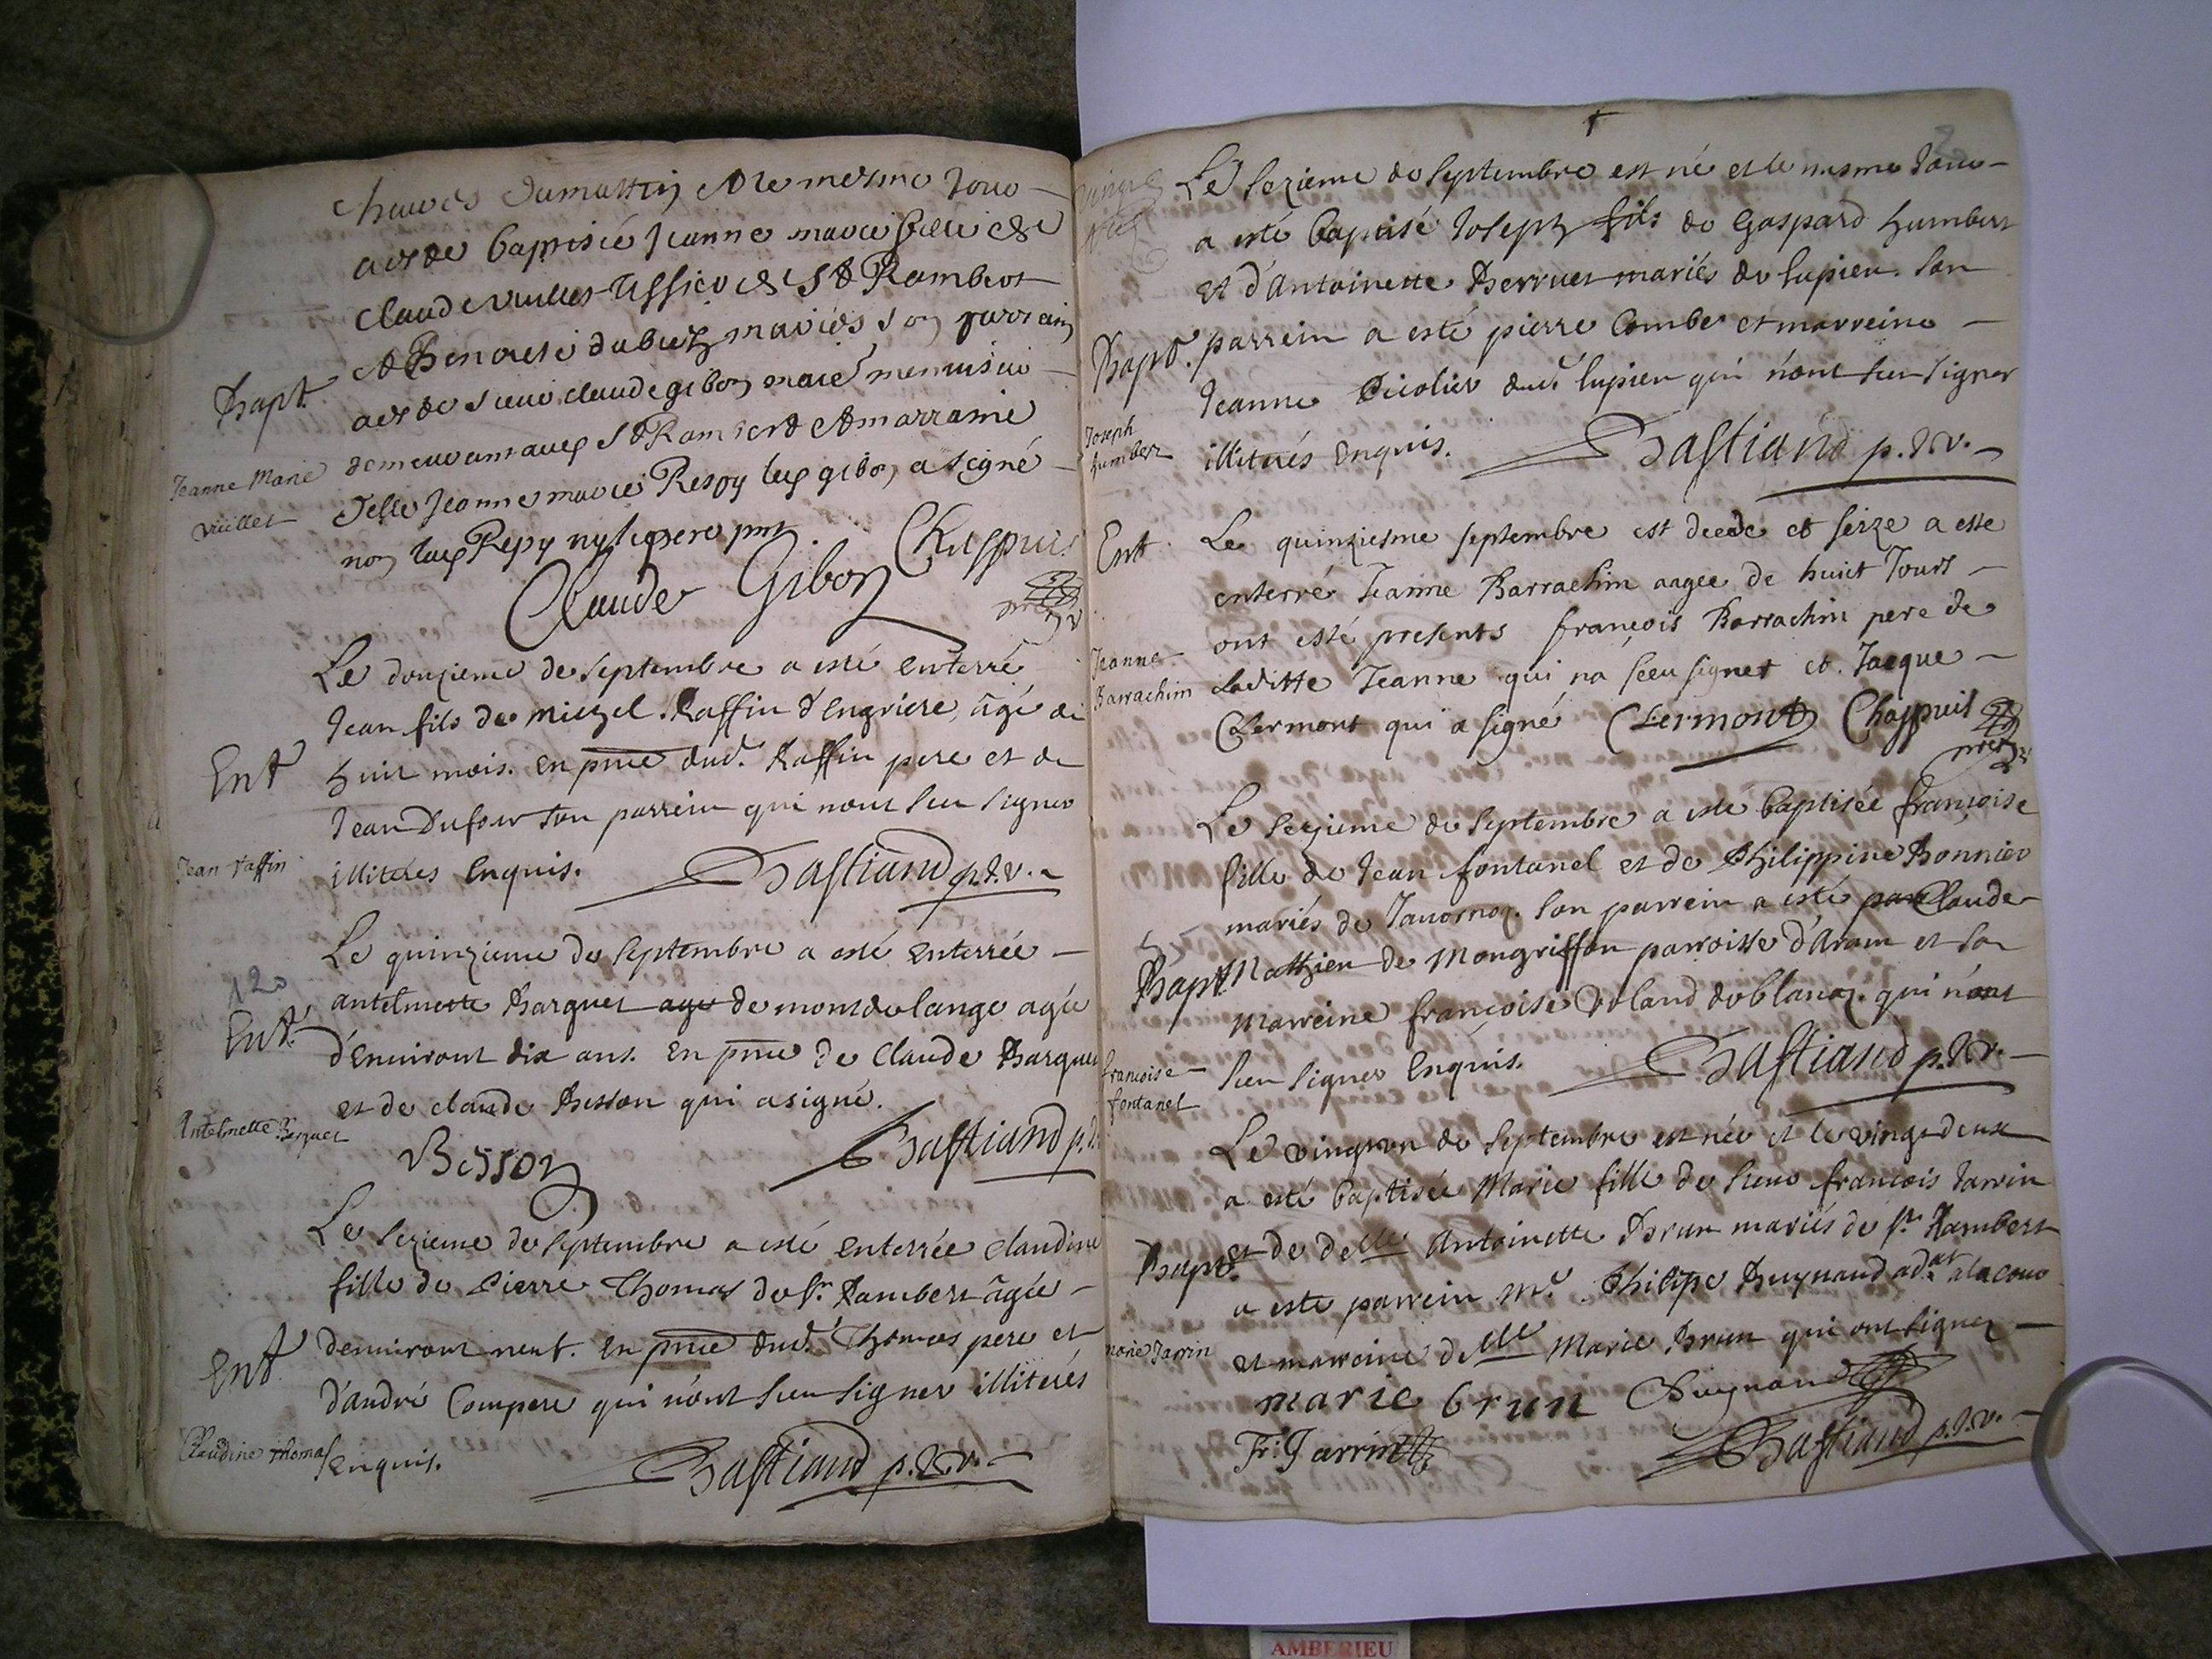 heures du mattin & le mesme Jour
a esté baptisée Jeanne marie fille de
Claude vuillet tissier de St Rambert
& Benoite dubiez mariés son parrain
Bapt.
a esté sieur claude gibon menuisier
demeurant aud St Rambert & marraine
Jeanne Marie
vuillet
delle Jeanne marie Respy led gibon a signé
non lad Respy ny le pere pnt
Claude Gibon Chappuis
Le douzieme de Septembre a esté enterré
Jean fils de michel Raffin d'Engriere, âgé de
Ent
huit mois. en pnce dud. Raffin pere et de
Jean Dufour son parrein qui n'ont sceu signer
Jean raffin
illiterés enquis. Bastiand p.&v.
Le quinzieme de Septembre a esté enterrée
120
Ent.
antelmette Barquet age de montdelange agée
d'environt dix ans. en pnce de Claude Barquet
et de claude Besson qui a signé.
Antelmette Barquet
Besson Bastiand p.&
Le Sezieme de Septembre a esté enterrée claudine
fille de Pierre Thomas de St. Rambert âgée
Ent.
d'environt neuf. en pnce dud. Thomas pere et
d'andré Compere qui n'ont sceu signer illiterés
Claudine thomas
enquis. Bastiand p.&v.
Le Sezieme de Septembre est né et le mesme Jour
a esté baptisé Joseph fils de Gaspard humbert
et d'antoinette Berruet mariés de lupieu. Son
Bapt.
parrein a esté pierre Combe et marreine
Jeanne Picolier dud. lupieu qui n'ont sceu signer
Joseph
humbert
illiterés enquis. Bastiand p.&v.
Ent
Le quinziesme septembre est decede et seize a este
enterré Jeanne Barrachin aagee de huict Jours
ont esté presents françois Barrachin pere de
Jeanne
Barrachim
laditte Jeanne qui na sceu signer et Jacque
Clermont qui a signé Clermont Chappuis
Le Sezieme de Septembre a esté baptisée françoise
fille de Jean fontanel et de Philippine Bonnier
mariés de Javornoz. Son parrein a esté par Claude
Bapt.
Mathieu de Mongriffon parroisse d'Aram et sa
marreine françoise Voland de blanaz. qui n'ont
francoise
fontanel
sceu signer enquis. Bastiand p.&v.
Le vingt un de Septembre est née et le vingt deux
a esté baptisée Marie fille de sieur françois Jarrin
Bapt.
et de delle Antoinette Brun mariés de St. Rambert
a este parrein Mr. Philipe Buynand adat. a la cour
marie Jarrin
et marreine delle Marie Brun qui ont signez
marie brun Buynand
Fr: Jarrin
Bastiand p.&v.
AMBERIEU